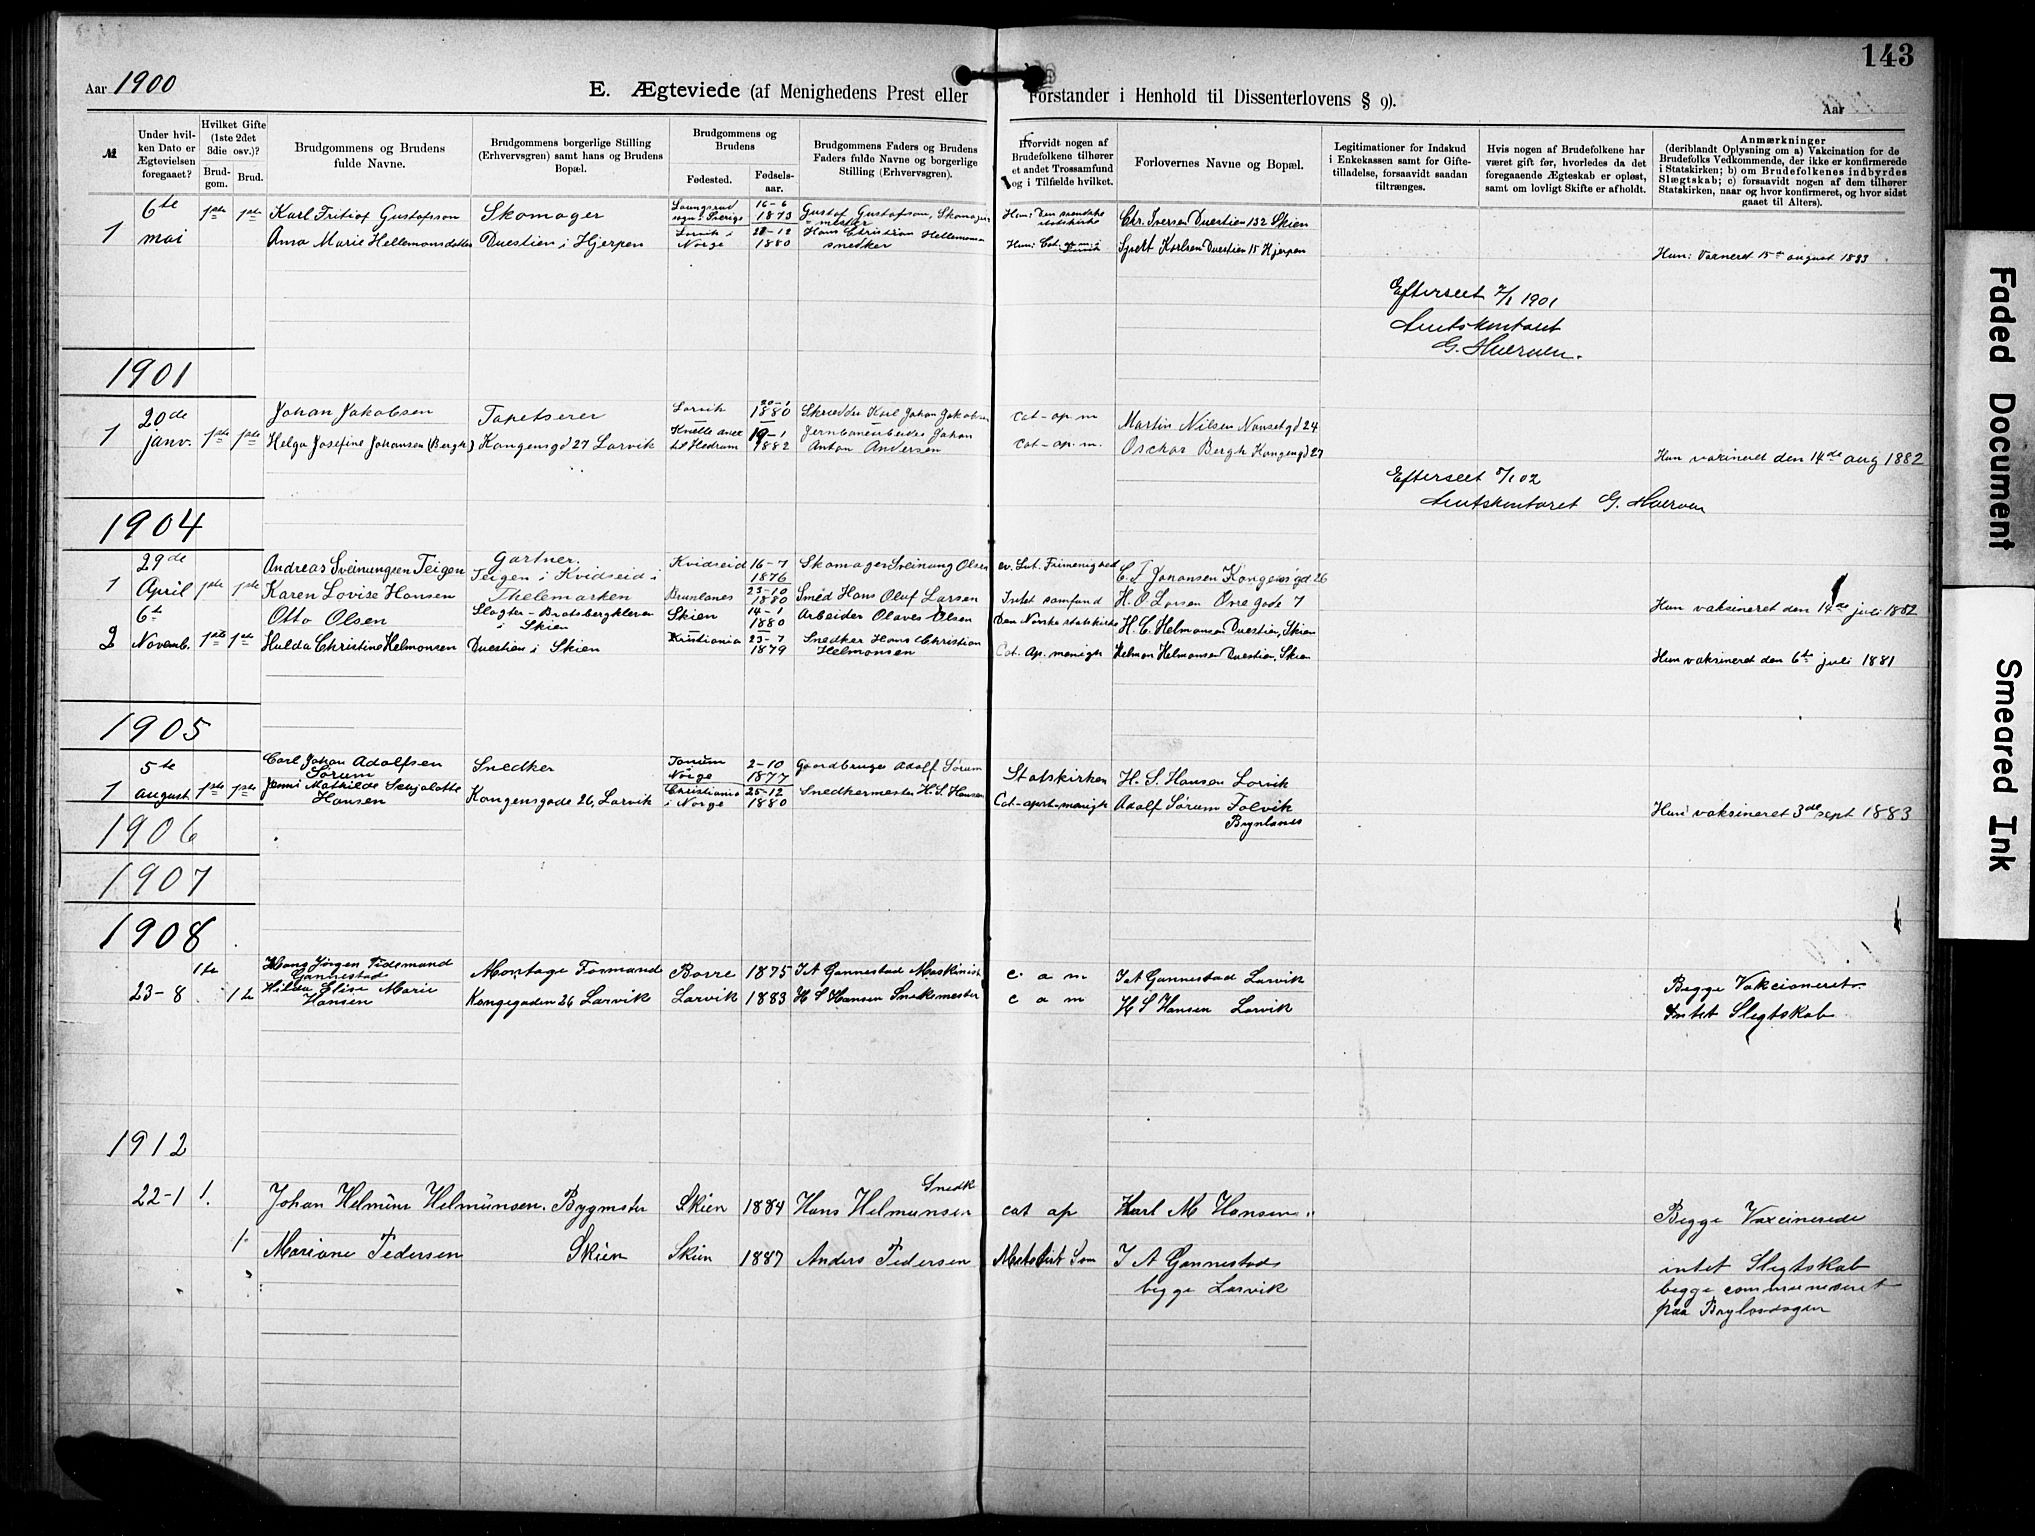 143
Aar 1900
E. Ægteviede (af Menighedens Prest eller Forstander i Henhold til Dissenterlovens § 9).
Aar
№
Under hvil-
ken Dato er
Ægtevielsen
foregaaet?
Hvilket Gifte
(1ste 2det
3die osv.)?
Brud-
gom.
Brud.
Brudgommens og Brudens
fulde Navne.
Brudgommens borgerlige Stilling
(Erhvervsgren) samt hans og Brudens
Bopæl.
Brudgommens og
Brudens
Fødested.
Fødsels-
aar.
Brudgommens Faders og Brudens
Faders fulde Navne og borgerlige
Stilling (Erhvervsgren).
Hvorvidt nogen af
Brudefolkene tilhører
et andet Trossamfund
og i Tilfælde hvilket.
Forlovernes Navne og Bopæl.
Legitimationer for Indskud
i Enkekassen samt for Gifte-
tilladelse, forsaavidt saadan
tiltrænges.
Hvis nogen af Brudefolkene har
været gift før, hvorledes da det
foregaaende Ægteskab er opløst,
samt om lovligt Skifte er afholdt.
Anmærkninger
(deriblandt Oplysning om a) Vakcination for de
Brudefolks Vedkommende, der ikke er konfirmerede
i Statskirken; b) om Brudefolkenes indbyrdes
Slægtskab; c) forsaavidt nogen af dem tilhører
Statskirken, naar og hvor konfirmeret, og hvor sidst
gaaet til Alters).
6te 1ste 1ste Karl Fritiof Gustafsson Skomager Sverige 16-6 1873 Gustaf Gustafson, Skomager Han: Den svenske statskirke Chr. Iversen Duestien 132 Skien
1 mai Anna Marie Hellemonsdatter Duestien i Hjerpen Larvik i Norge 28-12 1880 Hans Christian Hellemonsen snedker Hun: Cat. Karlsen Duestien 15 Hjerpen Hun: Vaxineret 15de august 1883
Efterseet 2/1 1901
Amtskontoret
1901
20de Johan Jakobsen Tapetserer Larvik 20-1 1880 Skrædder Karl Johan Jakobsen cat-ap. m Martin Nilsen Nansetgd 24
1 janv. 1ste 1ste Helga Josefine Johansen (Bergh) Kongensgd 27 Larvik til Hedrum 19-1 1882 Jernbanearbeider Johan Anton Andersen cat-ap. m. Osckar Bergh Kongengd 27
Hun vaxineret den 14de aug 1882
Efterseet 8/1 02
Amtskontoret
1904
29de Andreas Sveinungsen Teigen Gartner. Kvidseid 16-7 1876 Skomager Sveinung Olsen ev. Lut. Frimenighed C. F. Johansen Kongensgd 26
1 April 1ste 1ste Karen Lovise Hansen Teigen i Kvidseid i Thelemarken Brunlanes 23-10 1880 Smed Hans Oluf Larsen Intet samfund H. O Larsen Øvregade 7 Hun vaksineret den 14de juli 1882
6te Otto Olsen Slagter - Bratsbergkleven i Skien Skien 14-1 1880 Arbeider Olaves Olsen Den Norske statskirke H. C. Helmonsen Duestien, Skien
2 Novemb. 1ste 1ste Hulda Christine Helmonsen Duestien i Skien Kristiania 23-7 1879 Snedker Hans Christian Helmonsen Cat. Ap. menigh Helmon Helmonsen Duestien, Skien Hun vaksineret den 6te juli 1881
1905
5te Carl Johan Adolfsen Sørum Snedker Tanum Norge 2-10 1877 Gaardbruger Adolf Sørum Statskirken H. S. Hansen Larvik
1 august 1ste 1ste Jenni Mathilde Schjalotte Hansen Kongensgade 26, Larvik Christiania i Norge 25-12 1880 Snedkermester H. S. Hansen Cat-apost-menigh Adolf Sørum Tolvik Brynlanes Hun vaksineret 3de sept 1883
1906
1907
1908
1te Hans Jørgen Tidemand Gannestad Montage Formand Borre 1875 I A Gannestad Maskinist c a m I A Gannestad Larvik
23-8 1te Hilda Elise Marie Hansen Kongegaden 26 Larvik Larvik 1883 H S Hansen Snekermester c a m H S Hansen Larvik
Begge Vakcineret
Intet Slegtskab
1912
22-1 1. Johan Helmuns Helmunsen. Bygmster Skien 1884 Hans Helmunsen Snedk cat ap Karl M Hansen Begge Vaxcinerede
1 Mariane Pedersen Skien Skien 1887 Anders Pedersen Metodist Sam I A Gannestad begge Larvik intet Slegtskab
begge communiceret
paa Bryllupsdagen
Faded Document
Smeared Ink